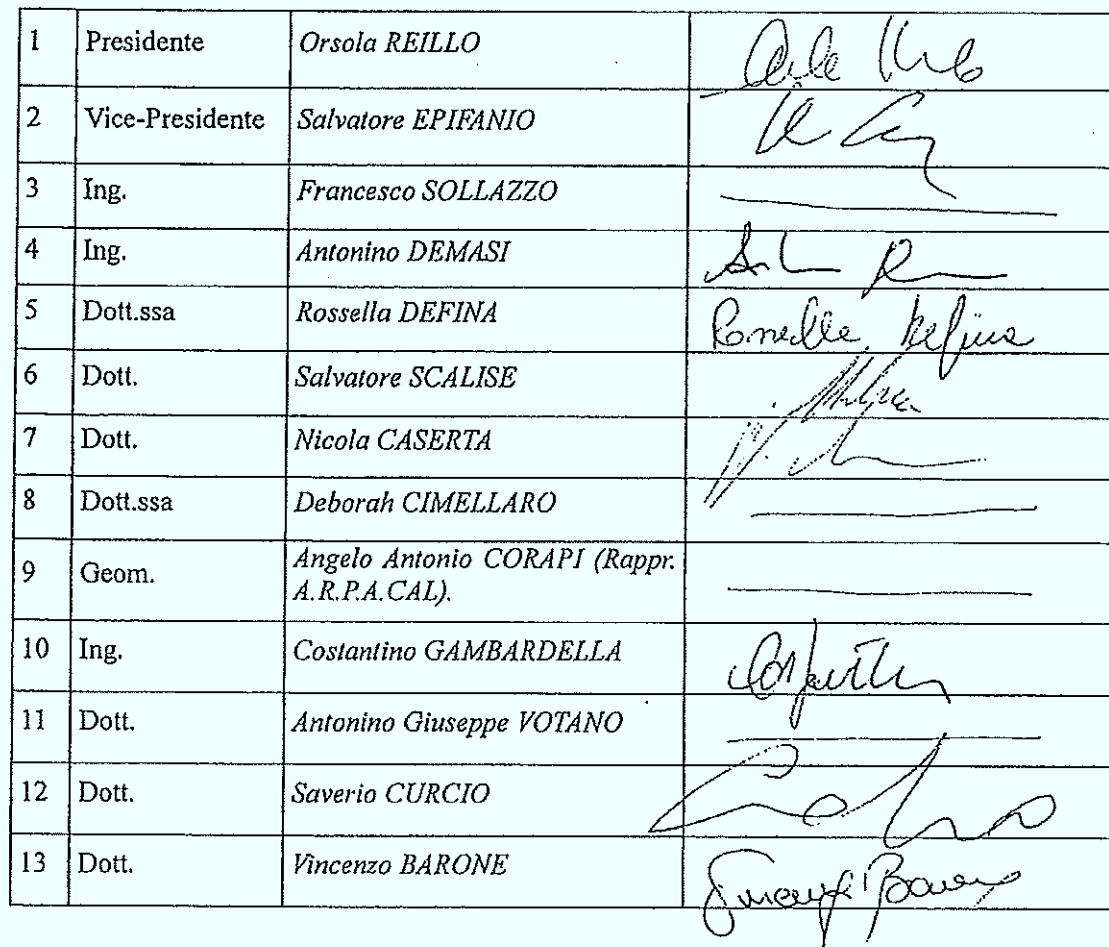 1 Presidente Orsola REILLO
2 Vice-Presidente Salvatore EPIFANIO
3 Ing. Francesco SOLLAZZO
4 Ing. Antonino DEMASI
5 Dott.ssa Rossella DEFINA Rossella Defina
6 Dott. Salvatore SCALISE
7 Dott. Nicola CASERTA
8 Dott.ssa Deborah CIMELLARO
9 Geom. Angelo Antonio CORAPI (Rappr.
A.R.P.A.CAL).
10 Ing. Costantino GAMBARDELLA
11 Dott. Antonino Giuseppe VOTANO
12 Dott. Saverio CURCIO
13 Dott. Vincenzo BARONE